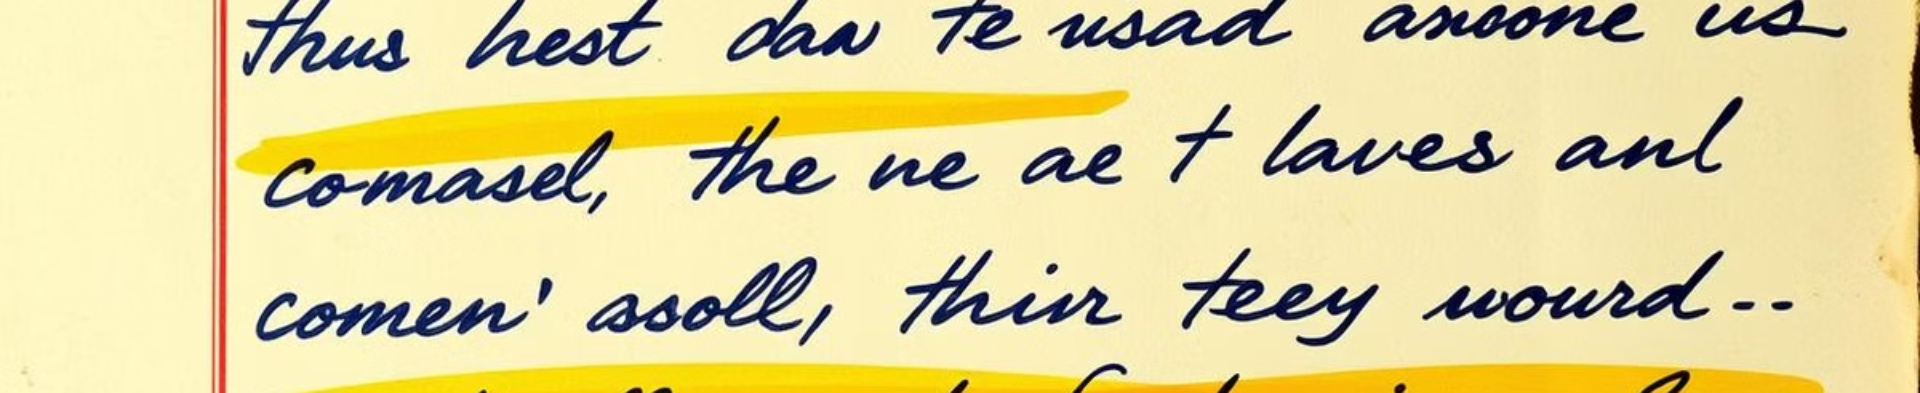 thus hest dan te usad anoone us
comasel, the ne ae t laves anl
comen' asoll, thin teey wourd--